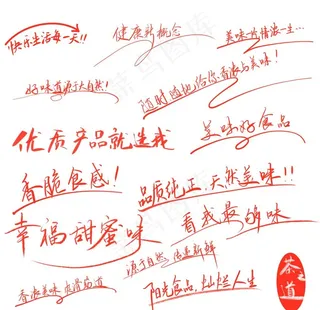 快乐生活每一天!!
健康新概念
美味一族情浓一生...
好味道源于大自然!
随时随地给你,香浓与美味!
优质产品就选我
美味好食品
香脆食感!
品质纯正,天然美味!!
幸福甜蜜味
看我最够味
源于自然
香浓美味
阳光食品,灿烂人生
茶之道